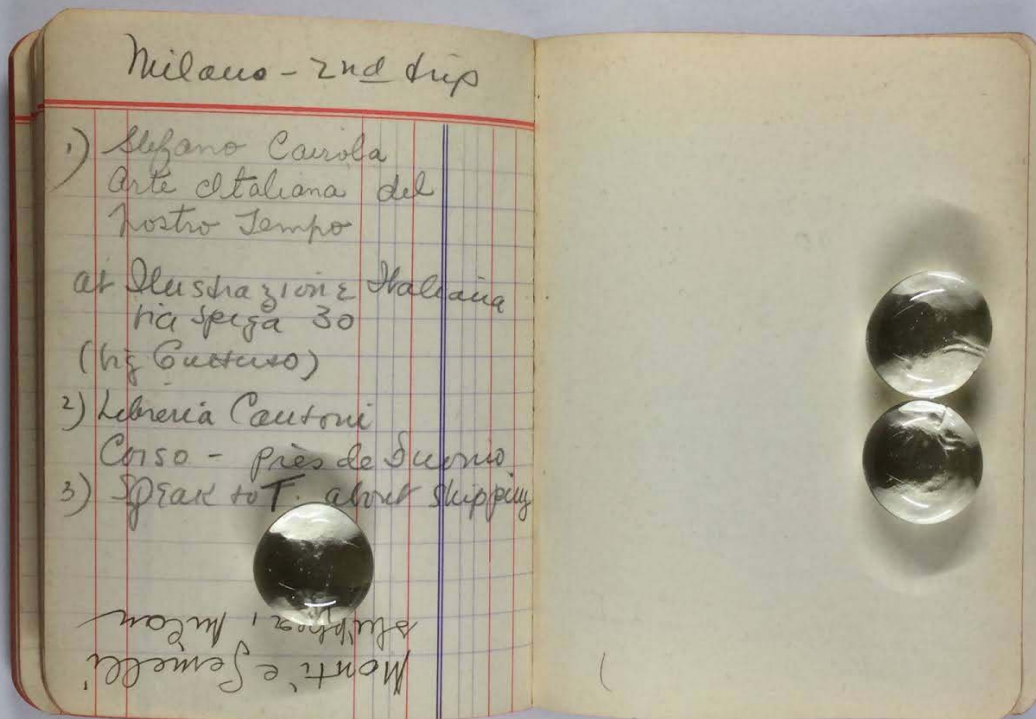 Milano - 2nd trip
1) Stefano Cairola
Arte Italiana del
Nostro Tempo
at Ilustrazione Italiana
via Spiga 30
(big Guttuso)
2) Libreria Cantoni
Corso - près de Duomo
3) Speak to T. about shipping
Monti e Gemelli
shipper, Milan